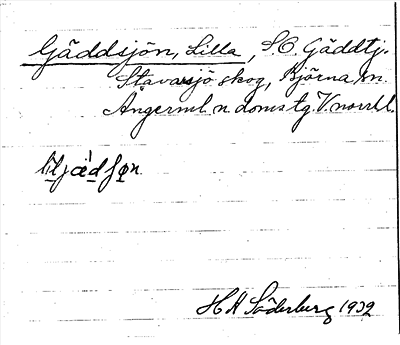 Gäddsjön, Lilla, S.O. Gäddtj.
Stavarsjö skog, Björna sn.
Ångerml. n. doms tg. V. norrl l.
H A Söderberg 1932